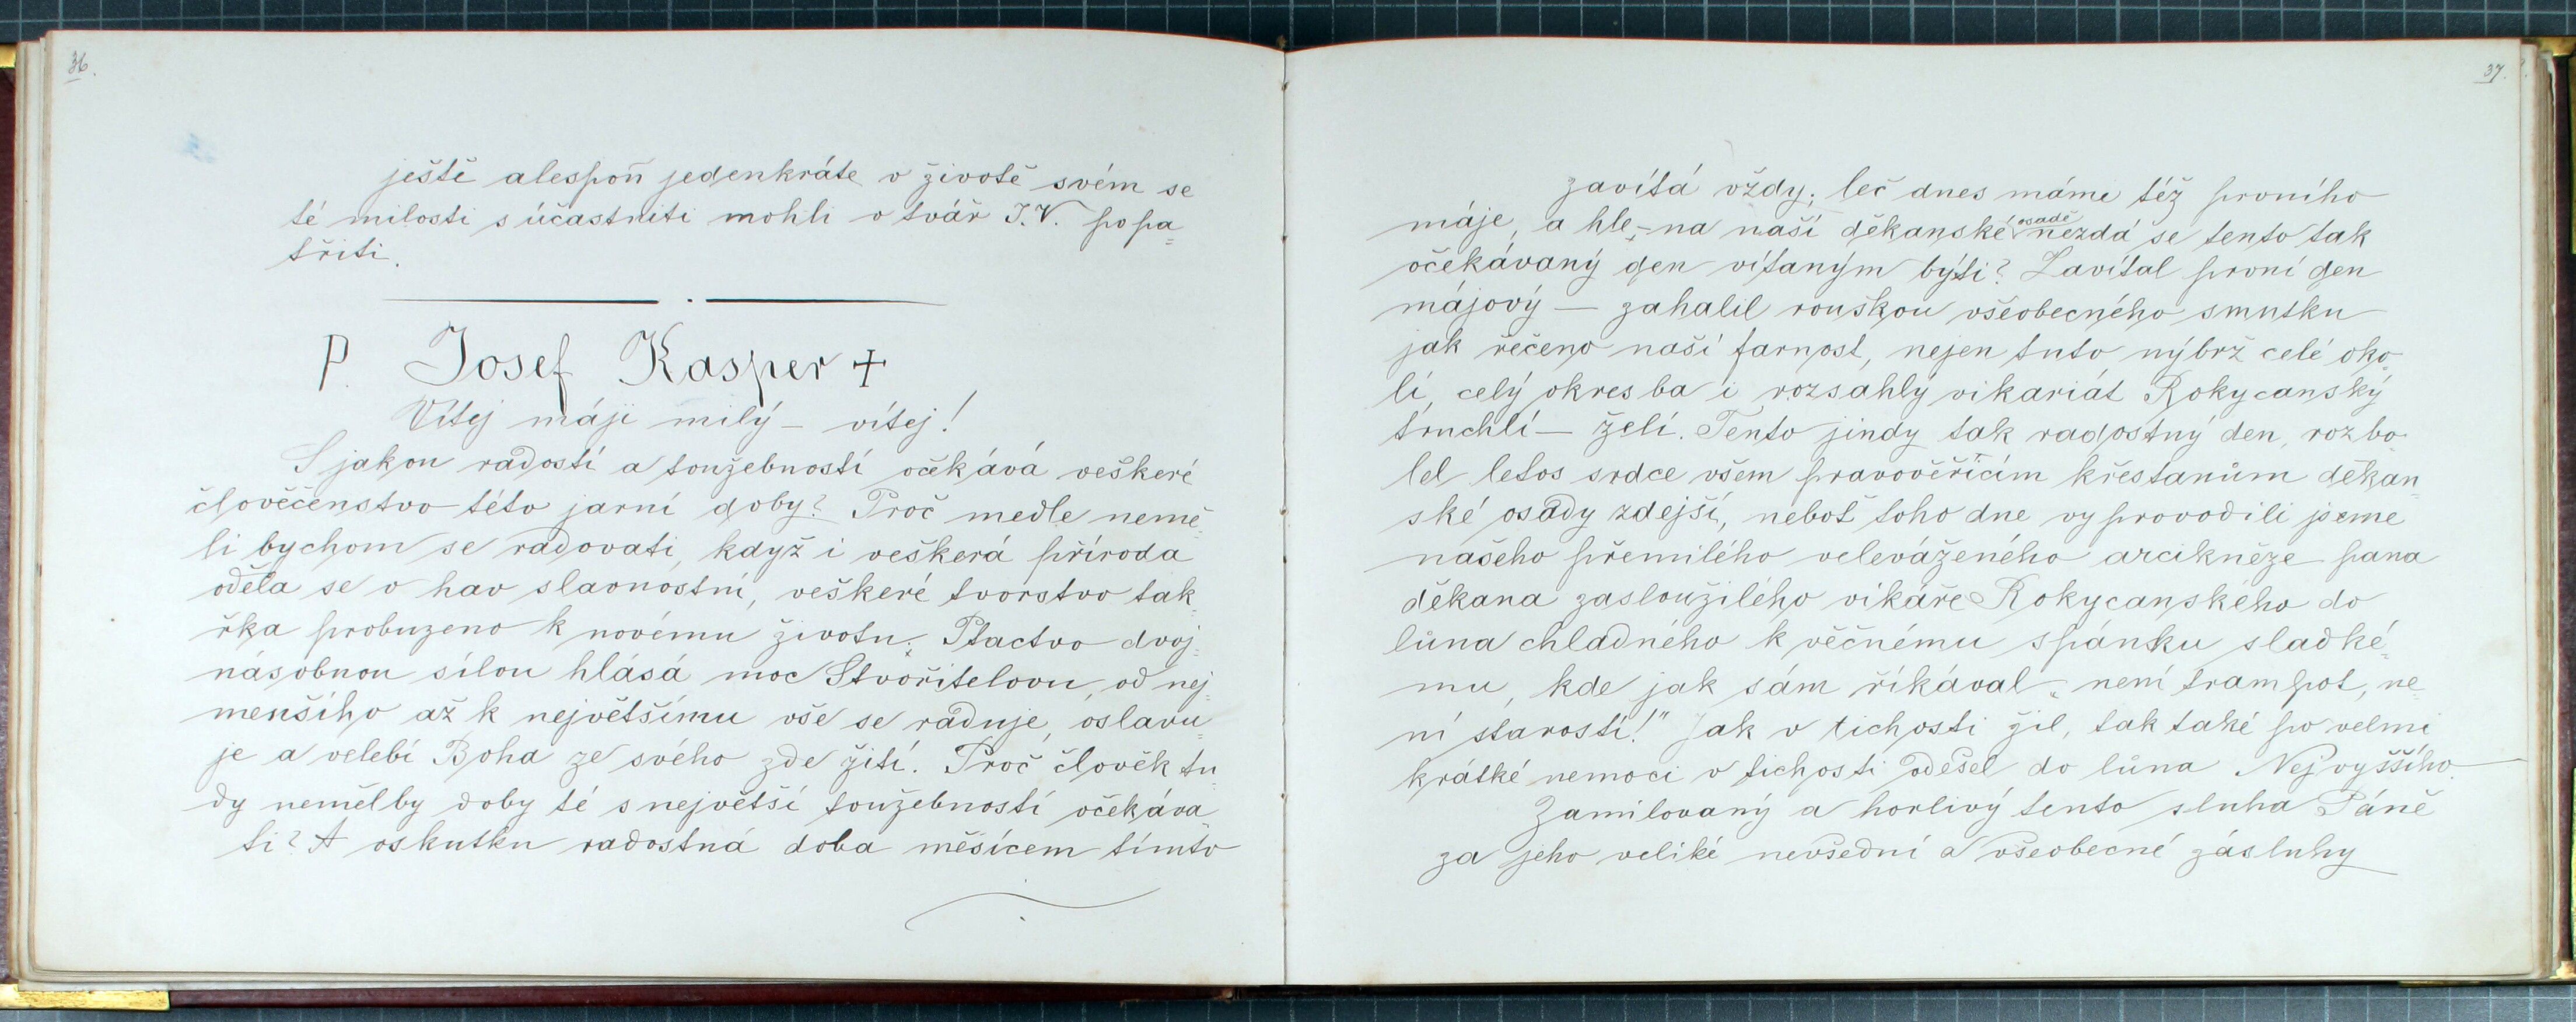 36.
ještě alespoň jedenkráte v životě svém se
té milosti súčastniti mohli v tvář J.V. popa=
třiti.
P. Josef Kasper +
Vítej máji milý – vítej!
S jakou radostí a toužebností očekává veškeré
člověčenstvo této jarní doby? Proč medle nemě=
li bychom se radovati, když i veškerá příroda
oděla se v hav slavnostní, veškeré tvorstvo tak=
řka probuzeno k novému životu. Ptactvo dvoj=
násobnou silou hlásá moc Stvořitelovu, od nej=
menšího až k největšímu vše se raduje, oslavu=
je a velebí Boha ze svého zde žití. Proč člověk tu
dy neměl by doby té s největší toužebností očekáva=
ti? A vskutku radostná doba měsícem tímto
37.
zavítá vždy; leč dnes máme též prvního
máje, a hle, – na naší děkanské osadě nezdá se tento tak
očekávaný den vítaným býti? Zavítal první den
májový — zahalil rouškou všeobecného smutku
jak řečeno naší farnost, nejen tuto nýbrž celé oko=
lí, celý okres ba i rozsahlý vikariát Rokycanský
truchlí — želí. Tento jindy tak radostný den, rozbo=
lel letos srdce všem pravověřícím křestanům děkan=
ské osady zdejší, neboť toho dne vyprovodili jsme
našeho přemilého veleváženého arcikněze pana
děkana zasloužilého vikáře Rokycanského do
lůna chladného k věčnému spánku sladké=
mu, kde jak sám říkával „není trampot, ne=
ní starostí!" Jak v tichosti žil, tak také po velmi
krátké nemoci v tichosti odešel do lůna Nejvyššího.
Zamilovaný a horlivý tento sluha Páně
za jeho veliké nevšední a všeobecné zásluhy